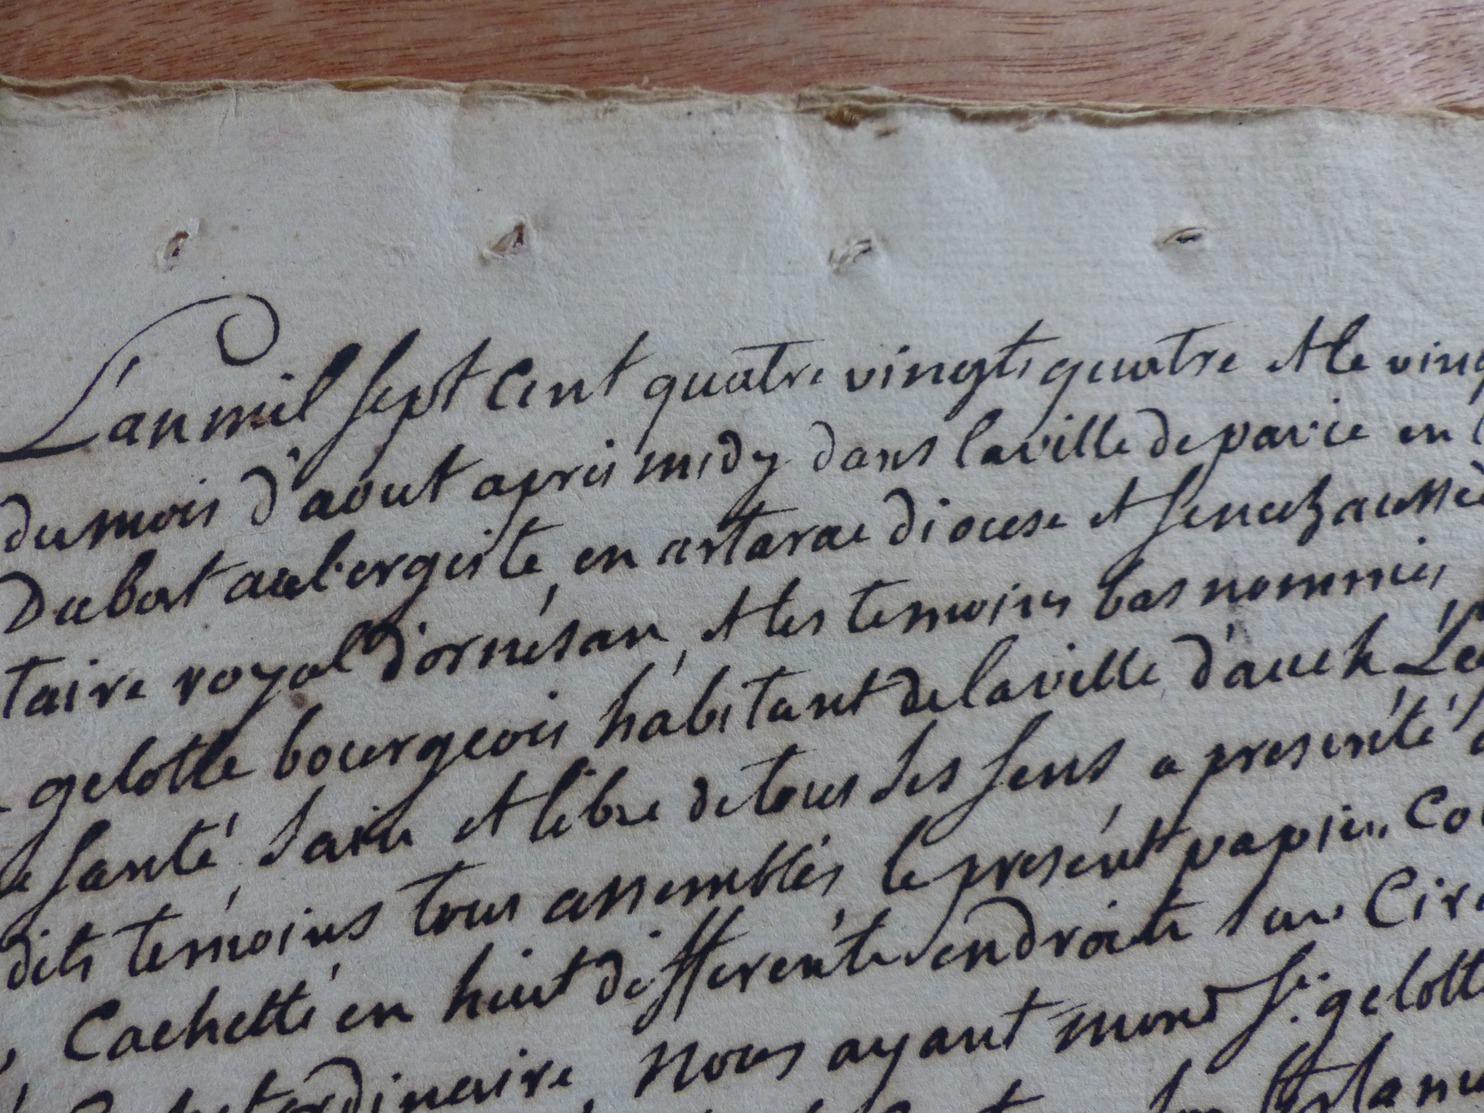 L'an mil sept cent quatre vingts quatre et le ving
du mois d'aout apres midy dans la ville de pavie en
Dubort aubergiste, en astarac diocese et senechaussé
taire royal d'ornésan, et les temoins bas nommés,
gelotte bourgeois habitant de la ville d'auch Le
santé, sain et libre de tous ses sens a presenté
dits temoins tous assemblés le present papier
Cachetté en huit differents endroits sur Cire
nous ayant mond Sr. gelotte